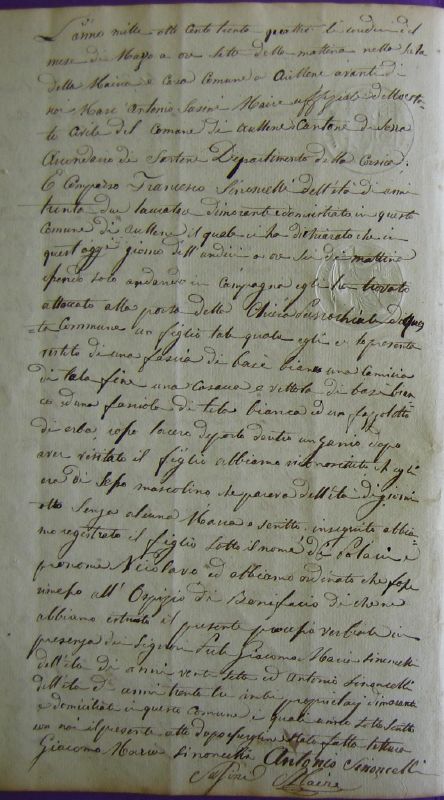 L'anno mille otto cento trenta quattro li undici del
mese di Maggio a ore sette della mattina nella sala
della Maira e Casa Comune d'Aullene avanti di
noi Marc' Antonio Maire uffiziale dello
Civile del Comune di Aullene Cantone di Serra
Circondario di Sartene Dipartimento della Corsica;
E Comparso Francesco Simoncelli dell'età di anni
trenta due dimorante e domiciliato in questo
Comune di Aullene il quale ci ha dichiarato che in
quest'oggi giorno dell'undici a ore sei di mattina
essendo solo andando in Campagna egli ha trovato
alla porta della Chiesa Parrochiale di ques
ta Commune un figlio tale quale egli ci lo presenta
vestito di una fascia di bianca una Camicia
di tela fine una e di bian
co ed una fasciola di tela bianca ed un fazzoletto
di dentro un dopo
aver visitato il figlio abbiamo riconosciuto ch'egli
era di sesso mascolino che pareva dell'età di giorni
otto senza alcuna Marca e in seguito abbia
mo registrato il figlio sotto il nome di e
pronome Nicolavo ed abbiamo ordinato che fosse
rimesso all'Ospizio di Bonifacio di che ne
abbiamo il presente processo verbale in
presenza dei Signori Giacomo Maria Simoncelli
dell'età di anni vent sette ed Antonio Simoncelli
dell'età di anni trenta tre proprietarj dimoranti
e domiciliati in questo Comune i quali anno sotto scritto
con noi il presente atto dopo fatta lettura
Giacomo Maria Simoncelli Antonio Simoncelli
Maire